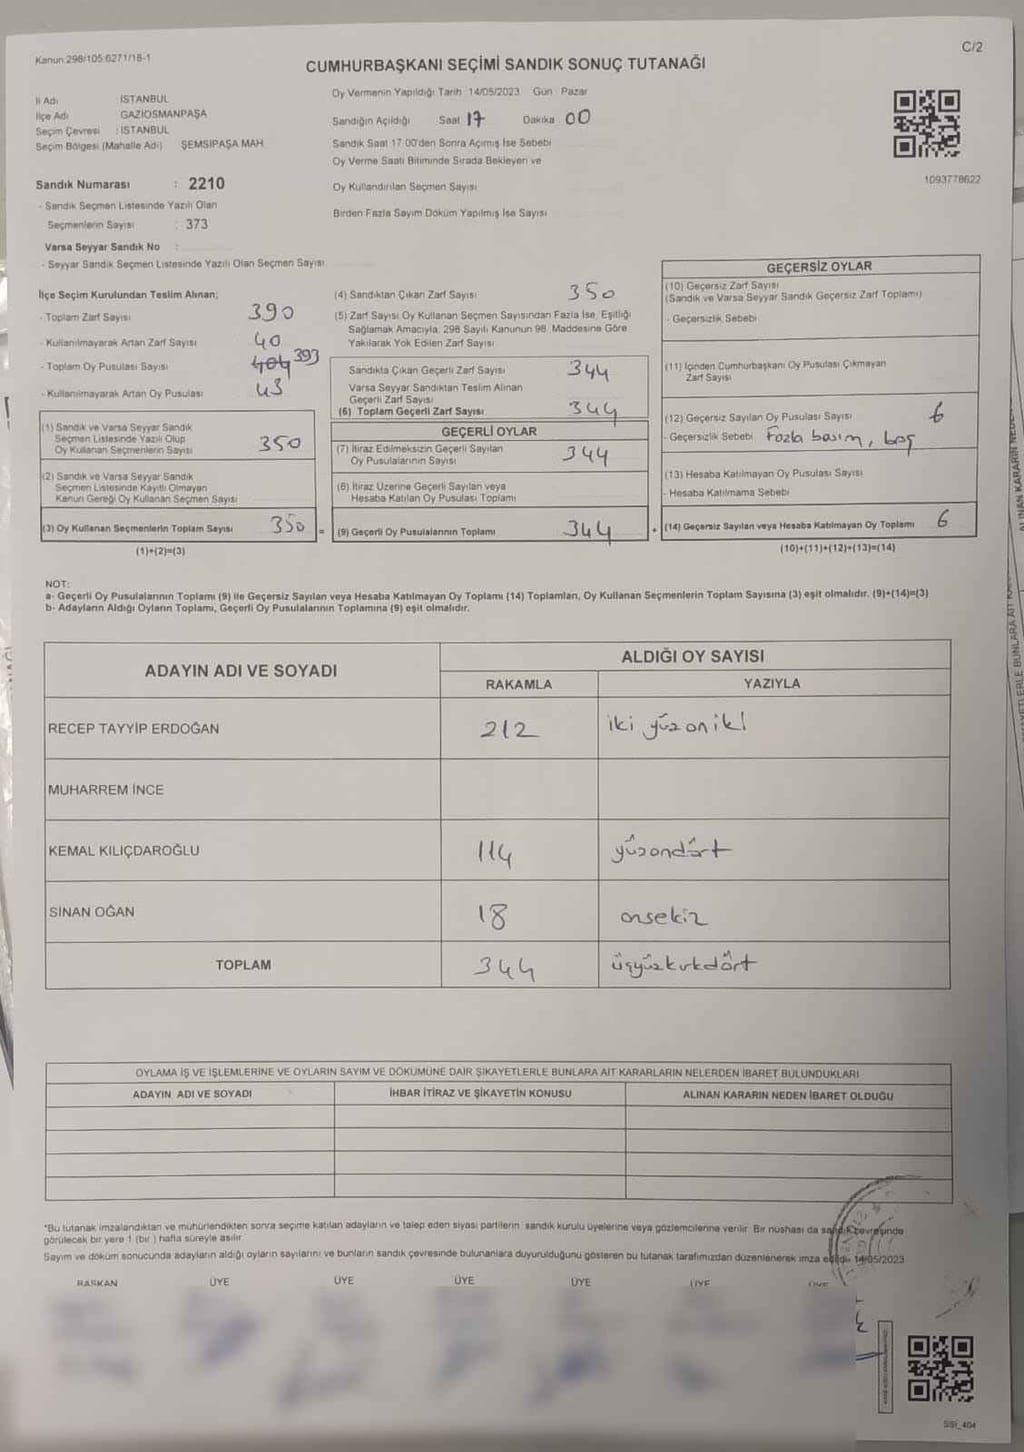 Kanun 298/105:6271/18-1
C/2
CUMHURBAŞKANI SEÇİMİ SANDIK SONUÇ TUTANAĞI
İl Adı : İSTANBUL
İlçe Adı GAZİOSMANPAŞA
Seçim Çevresi : İSTANBUL
Seçim Bölgesi (Mahalle Adı) ŞEMSİPAŞA MAH.
Sandık Numarası : 2210
- Sandık Seçmen Listesinde Yazılı Olan
Seçmenlerin Sayısı : 373
Varsa Seyyar Sandık No :
- Seyyar Sandık Seçmen Listesinde Yazılı Olan Seçmen Sayısı
Oy Vermenin Yapıldığı Tarih : 14/05/2023 Gün : Pazar
Sandığın Açıldığı Saat 17 Dakika 00
Sandık Saat 17:00'den Sonra Açılmış İse Sebebi
Oy Verme Saati Bitiminde Sırada Bekleyen ve
Oy Kullandırılan Seçmen Sayısı
Birden Fazla Sayım Döküm Yapılmış İse Sayısı
1093778622
İlçe Seçim Kurulundan Teslim Alınan;
- Toplam Zarf Sayısı 390
- Kullanılmayarak Artan Zarf Sayısı 40
- Toplam Oy Pusulası Sayısı 404 393
- Kullanılmayarak Artan Oy Pusulası 43
(1) Sandık ve Varsa Seyyar Sandık
Seçmen Listesinde Yazılı Olup
Oy Kullanan Seçmenlerin Sayısı 350
(2) Sandık ve Varsa Seyyar Sandık
Seçmen Listesinde Kayıtlı Olmayan
Kanun Gereği Oy Kullanan Seçmen Sayısı
(3) Oy Kullanan Seçmenlerin Toplam Sayısı 350 =
(1)+(2)=(3)
(4) Sandıktan Çıkan Zarf Sayısı 350
(5) Zarf Sayısı Oy Kullanan Seçmen Sayısından Fazla İse, Eşitliği
Sağlamak Amacıyla, 298 Sayılı Kanunun 98. Maddesine Göre
Yakılarak Yok Edilen Zarf Sayısı
Sandıkta Çıkan Geçerli Zarf Sayısı 344
Varsa Seyyar Sandıktan Teslim Alınan
Geçerli Zarf Sayısı
(6) Toplam Geçerli Zarf Sayısı 344
GEÇERLİ OYLAR
(7) İtiraz Edilmeksizin Geçerli Sayılan
Oy Pusulalarının Sayısı 344
(8) İtiraz Üzerine Geçerli Sayılan veya
Hesaba Katılan Oy Pusulası Toplamı
(9) Geçerli Oy Pusulalarının Toplamı 344 +
GEÇERSİZ OYLAR
(10) Geçersiz Zarf Sayısı
(Sandık ve Varsa Seyyar Sandık Geçersiz Zarf Toplamı)
- Geçersizlik Sebebi
(11) İçinden Cumhurbaşkanı Oy Pusulası Çıkmayan
Zarf Sayısı
(12) Geçersiz Sayılan Oy Pusulası Sayısı 6
- Geçersizlik Sebebi Fazla basım, boş
(13) Hesaba Katılmayan Oy Pusulası Sayısı
- Hesaba Katılmama Sebebi
(14) Geçersiz Sayılan veya Hesaba Katılmayan Oy Toplamı 6
(10)+(11)+(12)+(13)=(14)
NOT:
a- Geçerli Oy Pusulalarının Toplamı (9) ile Geçersiz Sayılan veya Hesaba Katılmayan Oy Toplamı (14) Toplamları, Oy Kullanan Seçmenlerin Toplam Sayısına (3) eşit olmalıdır. (9)+(14)=(3)
b- Adayların Aldığı Oyların Toplamı, Geçerli Oy Pusulalarının Toplamına (9) eşit olmalıdır.
ADAYIN ADI VE SOYADI
ALDIĞI OY SAYISI
RAKAMLA YAZIYLA
RECEP TAYYİP ERDOĞAN 212 iki yüzoniki
MUHARREM İNCE
KEMAL KILIÇDAROĞLU 114 yüzondört
SİNAN OĞAN 18 onsekiz
TOPLAM 344 üçyüzkırkdört
OYLAMA İŞ VE İŞLEMLERİNE VE OYLARIN SAYIM VE DÖKÜMÜNE DAİR ŞİKAYETLERLE BUNLARA AİT KARARLARIN NELERDEN İBARET BULUNDUKLARI
ADAYIN ADI VE SOYADI İHBAR İTİRAZ VE ŞİKAYETİN KONUSU ALINAN KARARIN NEDEN İBARET OLDUĞU
*Bu tutanak imzalandıktan ve mühürlendikten sonra seçime katılan adayların ve talep eden siyasi partilerin sandık kurulu üyelerine veya gözlemcilerine verilir. Bir nüshası da sandık çevresinde
görülecek bir yere 1 (bir) hafta süreyle asılır.
Sayım ve döküm sonucunda adayların aldığı oyların sayılarını ve bunların sandık çevresinde bulunanlara duyurulduğunu gösteren bu tutanak tarafımızdan düzenlenerek imza edildi. 14/05/2023
BAŞKAN ÜYE ÜYE ÜYE ÜYE ÜYE ÜYE
SSI_404